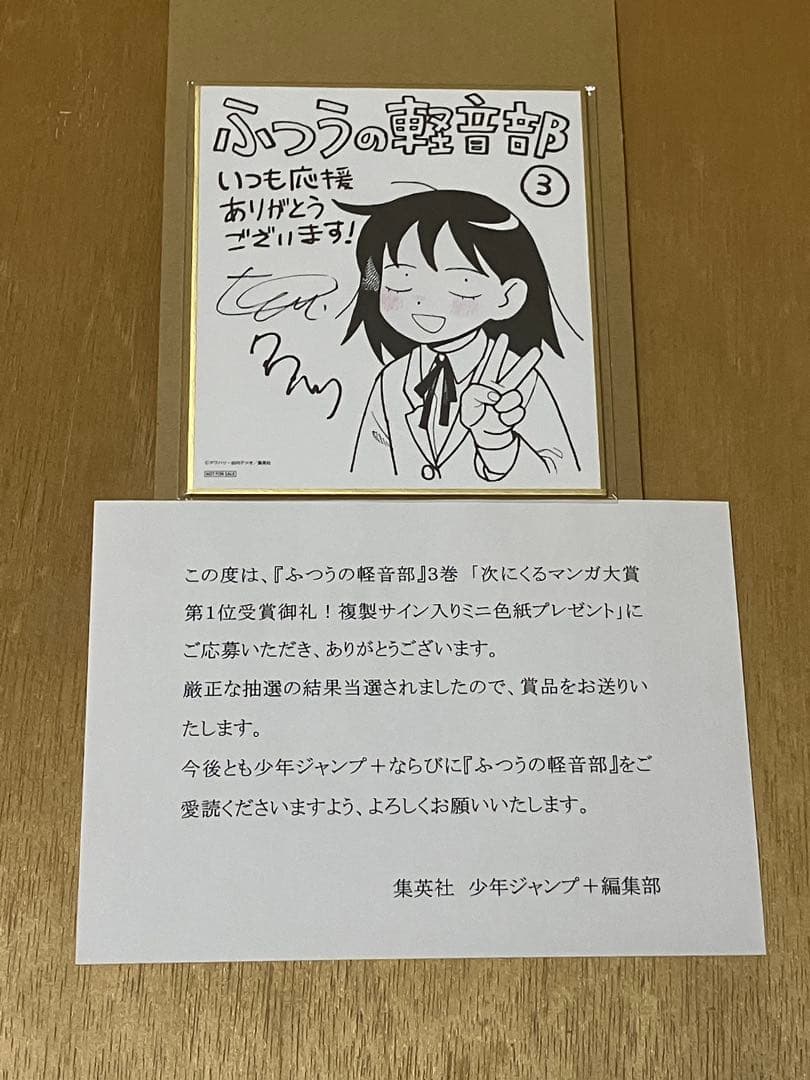 ふつうの軽音部
3
いつも応援
ありがとう
ございます!
©クワハリ・出内テツオ/集英社
NOT FOR SALE
この度は、『ふつうの軽音部』3巻 「次にくるマンガ大賞
第1位受賞御礼！複製サイン入りミニ色紙プレゼント」に
ご応募いただき、ありがとうございます。
厳正な抽選の結果当選されましたので、賞品をお送りい
たします。
今後とも少年ジャンプ＋ならびに『ふつうの軽音部』をご
愛読くださいますよう、よろしくお願いいたします。
集英社　少年ジャンプ＋編集部